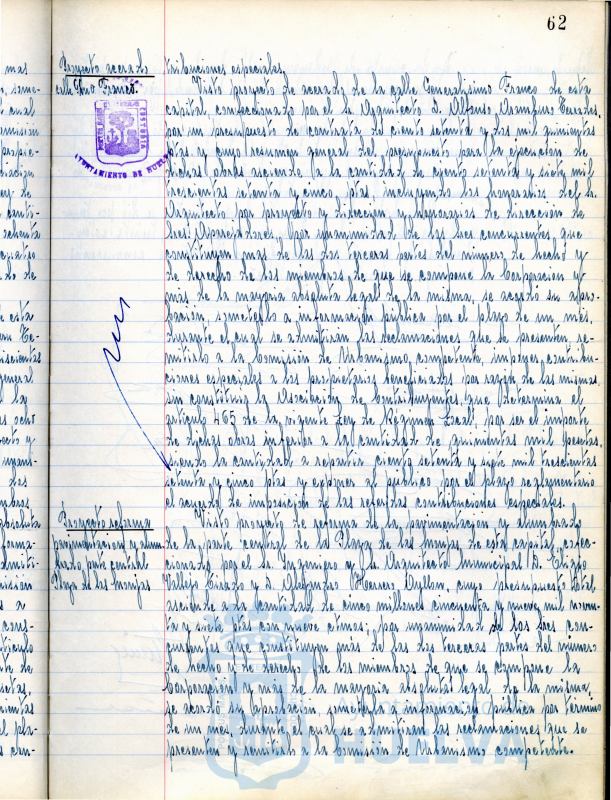 62
Proyecto acerado
calle Glmo Franco.
AYUNTAMIENTO DE HUELVA
tribuciones especiales.
Visto proyecto de acerado de la calle Generalísimo Franco de esta
capital, confeccionado por el Sr. Arquitecto D. Alfonso Aramburu Terrades,
por un presupuesto de contrata de ciento setenta y dos mil quinientas
ptas y cuyo resumen general del presupuesto para la ejecución de
dichas obras asciende a la cantidad de ciento setenta y siete mil
trescientas setenta y cinco ptas, incluyendo los honorarios del Sr.
Arquitecto por proyecto y dirección, y honorarios de dirección de
los Aparejadores, por unanimidad de los tres concurrentes que
constituyen mas de las dos terceras partes del número de hecho y
de derecho de los miembros de que se compone la Corporación y
más de la mayoria absoluta legal de la misma, se acordó su apro-
bación, someterlo a información pública por el plazo de un mes,
durante el cual se admitirán las reclamaciones que se presenten, re-
mitirlo a la Comisión de Urbanismo competente, imponer contribu-
ciones especiales a los propietarios beneficiados por razón de las mismas,
sin constituir la Asociación de Contribuyentes que determina el
artículo 465 de la vigente Ley de Régimen Local, por ser el importe
de dichas obras inferior a la cantidad de quinientas mil pesetas,
siendo la cantidad a repartir ciento setenta y siete mil trescientas
setenta y cinco ptas y exponer al público por el plazo reglamentario
el acuerdo de imposición de las referidas contribuciones especiales.
Proyecto reforma
pavimentación y alum-
brado parte central
Plaza de las Monjas
Visto proyecto de reforma de la pavimentación y alumbrado
de la parte central de la Plaza de las Monjas de esta capital, confec-
cionado por el Sr. Ingeniero y Sr. Arquitecto Municipales D.
Vallejo y D. Alejandro Herrero Ayllón, cuyo presupuesto total
asciende a la cantidad de cinco millones cincuenta y nueve mil
ptas con nueve ctmos, por unanimidad de los tres con-
currentes que constituyen más de las dos terceras partes del número
de hecho y de derecho de los miembros de que se compone la
Corporación y más de la mayoria absoluta legal de la misma,
se acordó su aprobación, someterlo a información pública por término
de un mes, durante el cual se admitirán las reclamaciones que se
presenten y remitirlo a la Comisión de Urbanismo competente.
HUELVA